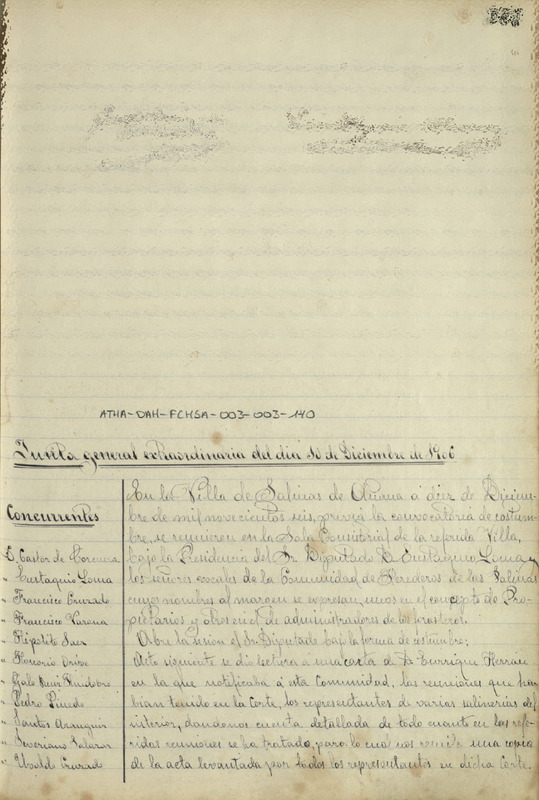 ATHA-DAH-FCHSA-003-003-140
Junta general extraordinaria del dia 10 de Diciembre de 1906
Concurrentes
D. Castor de
" Eustaquio Loma
" Francisco Conrado
" Francisco Varona
" Hipolito Saez
" Honorio
" Galo Ruiz Huidobro
" Pedro Pinedo
" Santos
" Severiano Salazar
" Ubaldo Conrado
En la Villa de Salinas de Añana a diez de Diciem-
bre de mil novecientos seis, previa la convocatoria de costum-
bre, se reunieron en la Sala Consistorial de la referida Villa,
bajo la Presidencia del Sr. Diputado D. Eustaquio Loma y
los señores vocales de la Comunidad de Herederos de las Salinas
cuyos nombres al margen se expresan, unos en el concepto de Pro-
pietarios y otros en el de administradores de los forasteros.
Abre la sesion el Sr. Diputado bajo la forma de costumbre:
Acto siguiente se dio lectura a una carta de D. Enrique Herran
en la que notificaba á esta Comunidad, las reuniones que ha-
bian tenido en la Corte, los representantes de varias salinerias del
interior, dandonos cuenta detallada de todo cuanto en las refe-
ridas reuniones se ha tratado, para lo cual nos remite una copia
de la acta levantada por todos los representantes en dicha Corte.